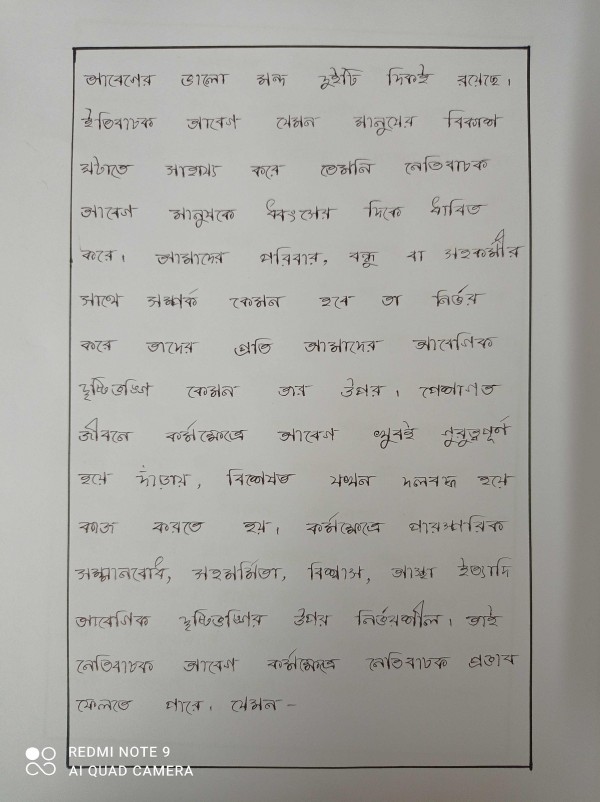 আবেগের ভালো মন্দ দুইটি দিকই রয়েছে।
ইতিবাচক আবেগ যেমন মানুষের বিকাশ
ঘটাতে সাহায্য করে তেমনি নেতিবাচক
আবেগ মানুষকে ধ্বংসের দিকে ধাবিত
করে। আমাদের পরিবার, বন্ধু বা সহকর্মীর
সাথে সম্পর্ক কেমন হবে তা নির্ভর
করে তাদের প্রতি আমাদের আবেগিক
দৃষ্টিভঙ্গি কেমন তার উপর। পেশাগত
জীবনে কর্মক্ষেত্রে আবেগ খুবই গুরুত্বপূর্ণ
হয়ে দাঁড়ায়, বিশেষত যখন দলবদ্ধ হয়ে
কাজ করতে হয়। কর্মক্ষেত্রে পারস্পরিক
সম্মানবোধ, সহমর্মিতা, বিশ্বাস, আস্থা ইত্যাদি
আবেগিক দৃষ্টিভঙ্গির উপর নির্ভরশীল। তাই
নেতিবাচক আবেগ কর্মক্ষেত্রে নেতিবাচক প্রভাব
ফেলতে পারে। যেমন -
REDMI NOTE 9
AI QUAD CAMERA